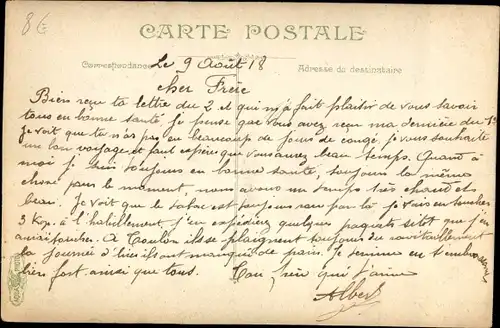 8 €
CARTE POSTALE
Correspondance
Adresse du destinataire
Le 9 Août 18
Cher Frère
Bien reçu ta lettre du 2 et qui m'a fait plaisir de vous savoir
tous en bonne santé je pense que vous avez reçu ma dernière du 1er
Je vois que tu n'as pas eu beaucoup de jours de congé, je vous souhaite
un bon voyage et faut espérer que vous aurez beau temps. Quant à
moi je suis toujours en bonne santé, toujours la même
chose pour le moment, nous avons un temps très chaud et
beau. Je vois que le tabac est toujours rare par là je vais en toucher
3 à l'habillement j'en expédierai quelques paquets sitôt que j'en
aurai toucher. A Toulon ils se plaignent toujours du ravitaillement
la journée d'hier ils ont manqué de pain. Je termine en t'embrassant
bien fort ainsi que tous. Ton frère qui t'aime
Albert